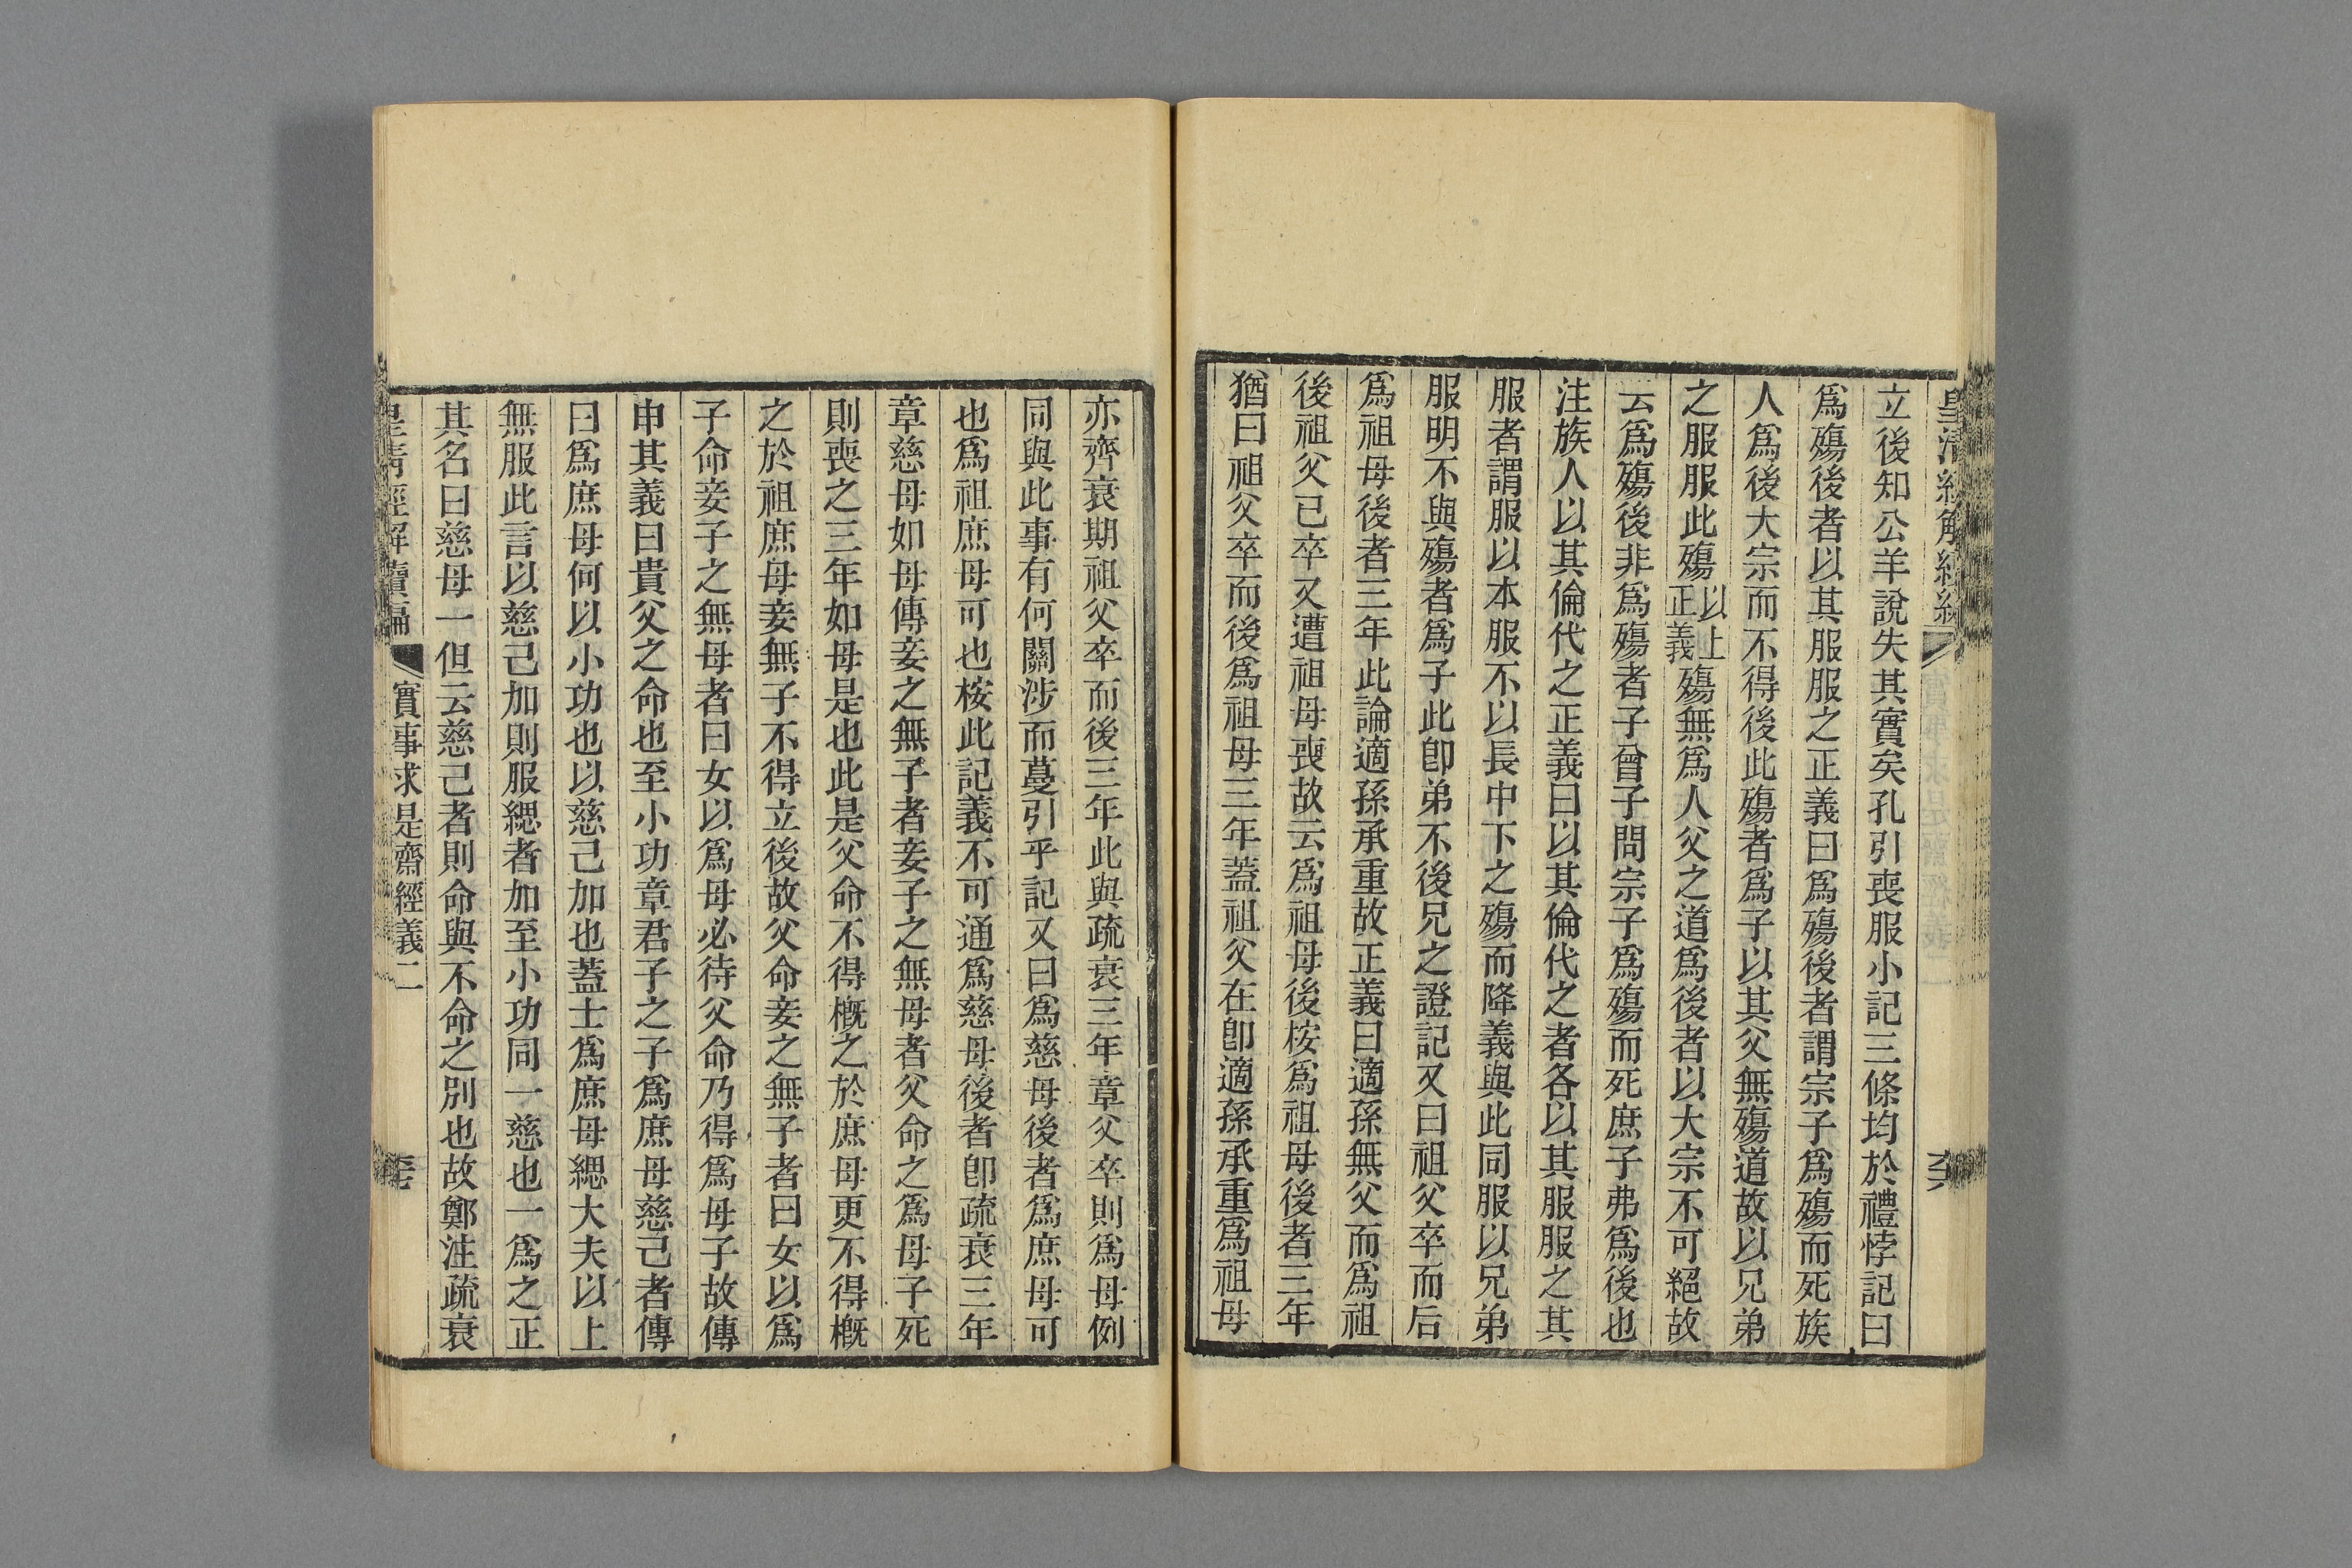 立後知公羊說失其實矣孔引喪服小記三條均於禮悖記曰
爲殤後者以其服服之正義曰爲殤後者謂宗子爲殤而死族
人爲後大宗而不得後此殤者爲子以其父無殤道故以兄弟
之服服此殤以上正義殤無爲人父之道爲後者以大宗不可絕故
云爲殤後非爲殤者子曾子問宗子爲殤而死庶子弗爲後也
注族人以其倫代之正義曰以其倫代之者各以其服服之其
服者謂服以本服不以長中下之殤而降義與此同服以兄弟
服明不與殤者爲子此卽弟不後兄之證記又曰祖父卒而后
爲祖母後者三年此論適孫承重故正義曰適孫無父而爲祖
後祖父已卒又遭祖母喪故云爲祖母後桉爲祖母後者三年
猶曰祖父卒而後爲祖母三年蓋祖父在卽適孫承重爲祖母
亦齊衰期祖父卒而後三年此與疏衰三年章父卒則爲母例
同與此事有何關涉而蔓引乎記又曰爲慈母後者爲庶母可
也爲祖庶母可也桉此記義不可通爲慈母後者卽疏衰三年
章慈母如母傳妾之無子者妾子之無母者父命之爲母子死
則喪之三年如母是也此是父命不得概之於庶母更不得概
之於祖庶母妾無子不得立後故父命妾之無子者曰女以爲
子命妾子之無母者曰女以爲母必待父命乃得爲母子故傳
申其義曰貴父之命也至小功章君子之子爲庶母慈己者傳
曰爲庶母何以小功也以慈己加也蓋士爲庶母緦大夫以上
無服此言以慈己加則服緦者加至小功同一慈也一爲之正
其名曰慈母一但云慈己者則命與不命之別也故鄭注疏衰
皇清經解續編
實事求是齋經義二